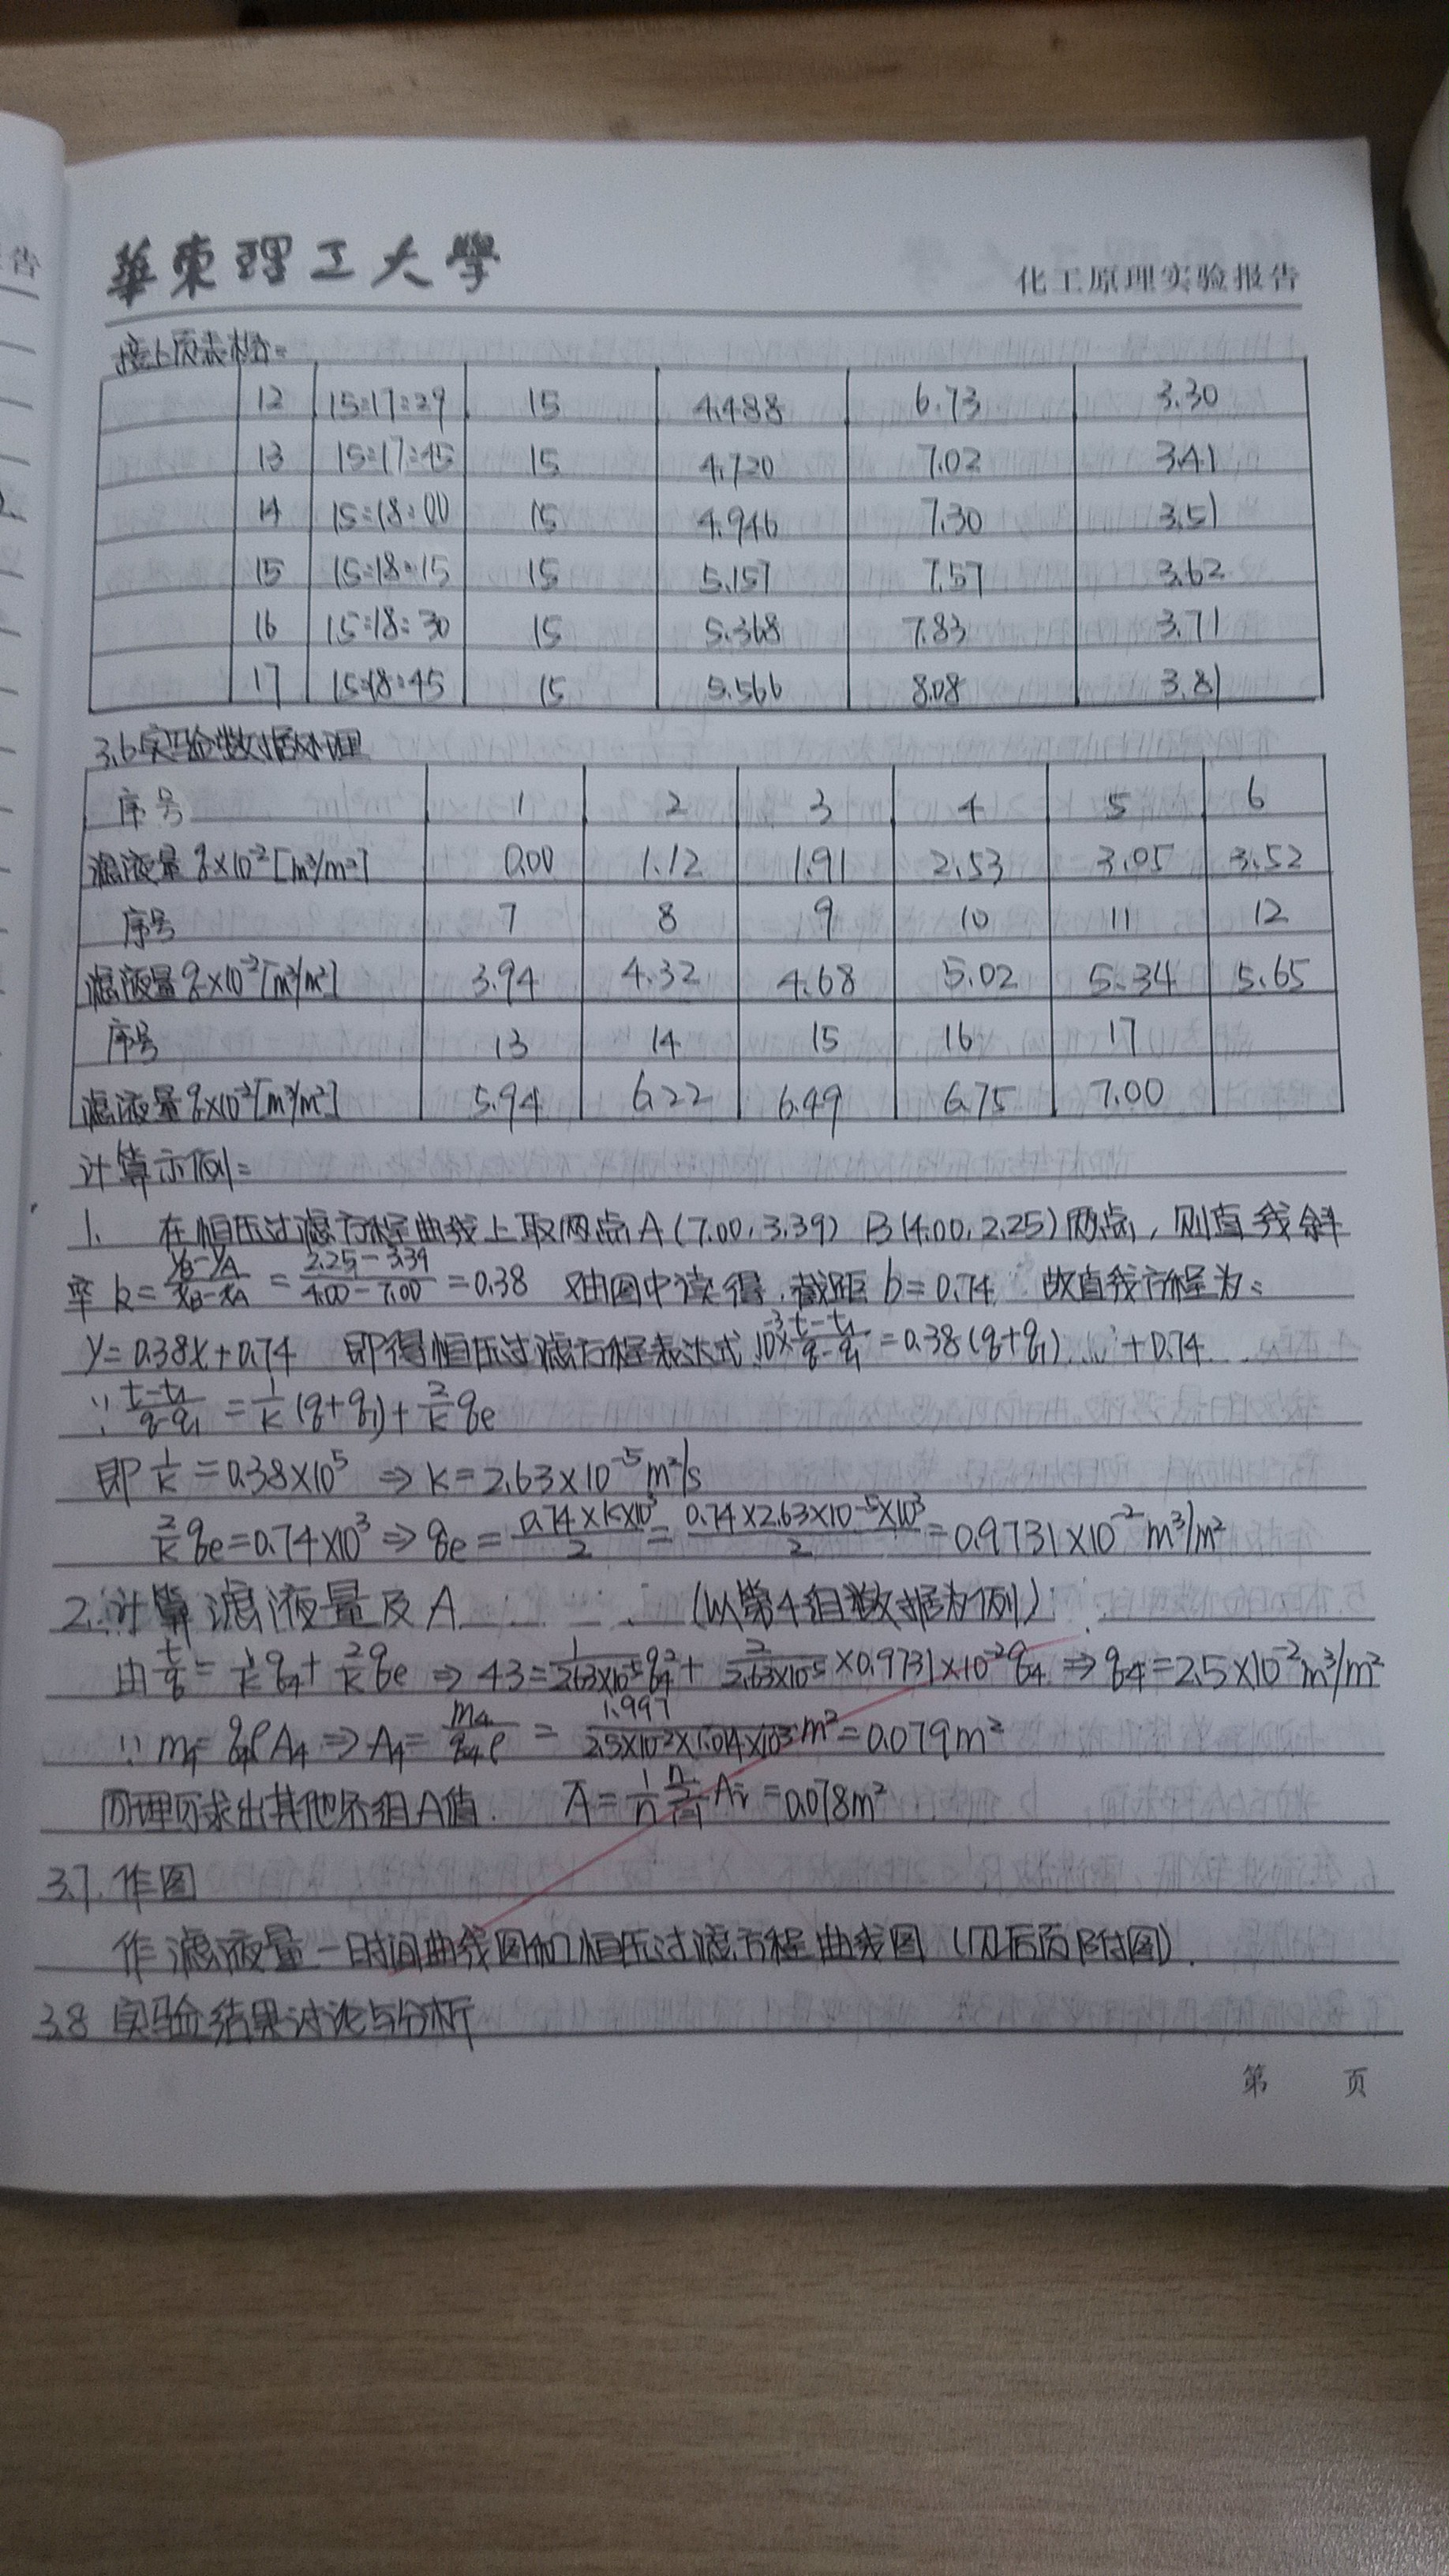 華東理工大學
化工原理实验报告
接上页表格:
12 15:17:29 15 4.488 6.73 3.30
13 15:17:45 15 4.720 7.02 3.41
14 15:18:00 15 4.946 7.30 3.51
15 15:18:15 15 5.157 7.57 3.62
16 15:18:30 15 5.368 7.83 3.71
17 15:18:45 15 5.566 8.08 3.81
3.6 实验数据处理
序号 1 2 3 4 5 6
滤液量 q×10⁻² [m³/m²] 0.00 1.12 1.91 2.53 3.05 3.52
序号 7 8 9 10 11 12
滤液量 q×10⁻² [m³/m²] 3.94 4.32 4.68 5.02 5.34 5.65
序号 13 14 15 16 17
滤液量 q×10⁻² [m³/m²] 5.94 6.22 6.49 6.75 7.00
计算示例:
1. 在恒压过滤方程曲线上取两点A(7.00,3.39) B(4.00,2.25)两点,则直线斜
率 k=(yB-yA)/(xB-xA)=(2.25-3.39)/(4.00-7.00)=0.38 又由图中读得,截距b=0.74 故直线方程为:
y=0.38x+0.74 即得恒压过滤方程表达式 10⁻³×(t-t₁)/(q-q₁)=0.38(q+q₁) +0.74
∵ (t-t₁)/(q-q₁)=1/K(q+q₁)+2/K qe
即 1/K=0.38×10⁵ ⇒ K=2.63×10⁻⁵m²/s
2/K qe=0.74×10³ ⇒ qe=(0.74×K×10³)/2=(0.74×2.63×10⁻⁵×10³)/2=0.9731×10⁻²m³/m²
2. 计算滤液量及A (以第4组数据为例)
由 t/q=1/K q₄+2/K qe ⇒ 43=1/(2.63×10⁻⁵)q₄²+2/(2.63×10⁻⁵)×0.9731×10⁻²q₄ ⇒ q₄=2.5×10⁻²m³/m²
∵ m₄=q₄ρA₄ ⇒ A₄=m₄/(q₄ρ)=1.997/(2.5×10⁻²×1.014×10³)m²=0.079m²
同理可求出其他各组A值. Ā=1/n Σ(i=1→n) Ai=0.078m²
3.7. 作图
作滤液量-时间曲线图和恒压过滤方程曲线图 (见后页附图).
3.8 实验结果讨论与分析
第 页